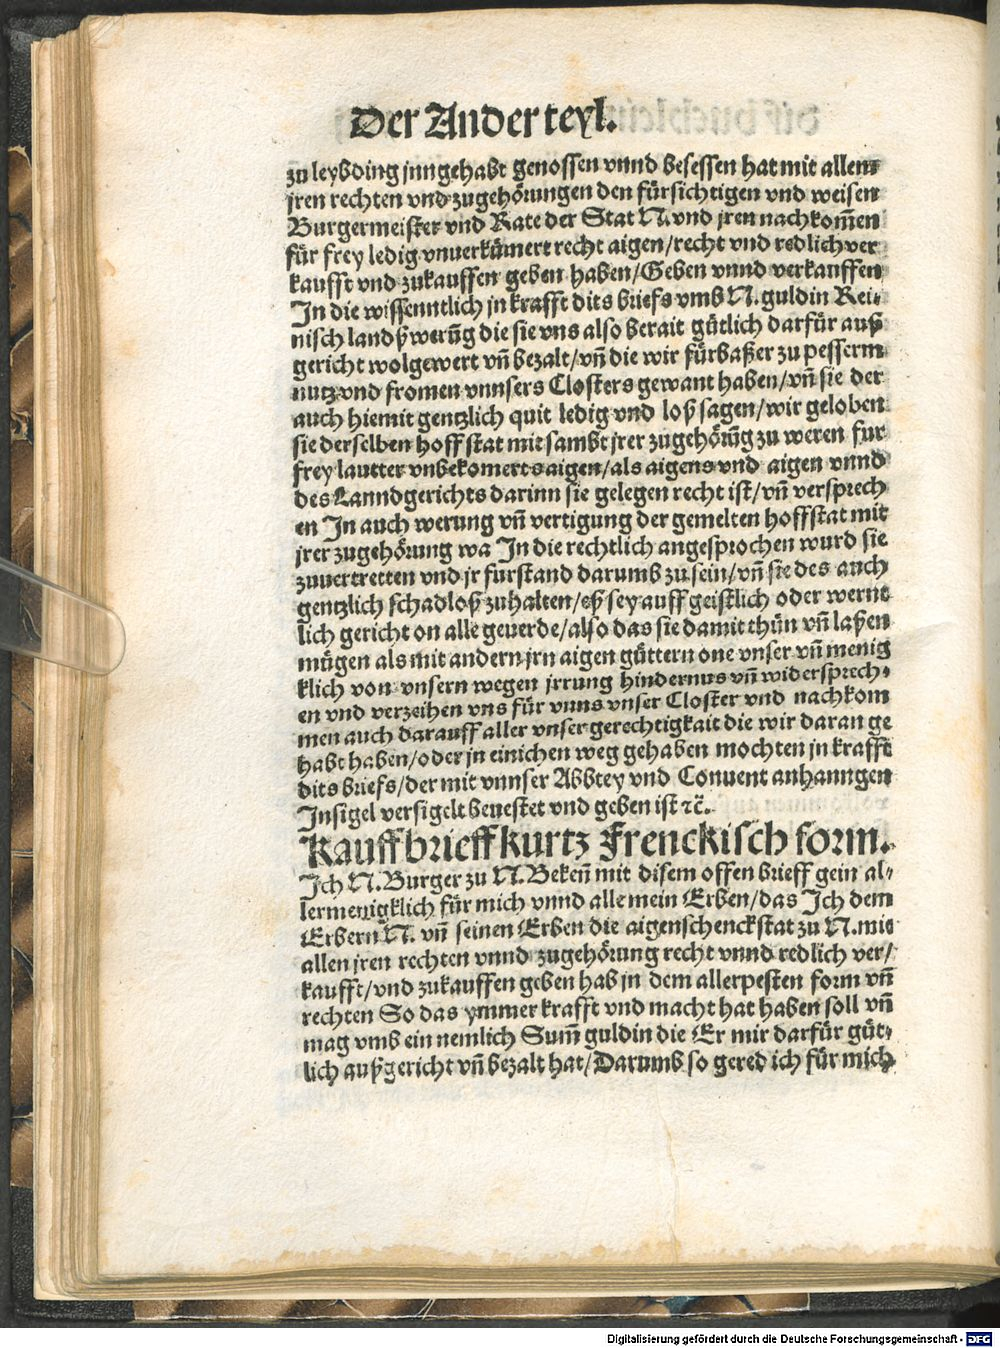 Der Ander teyl.
zu leybding jnngehabt genossen vnnd besessen hat mit allem
jren rechten vnd zugehörungen den fürsichtigen vnd weisen
Burgermeister vnd Rate der Stat N. vnd jren nachkom̄en
für frey ledig vnuerkümert recht aigen/recht vnd redlich ver
kaufft vnd zukauffen geben haben/Geben vnnd verkauffen
In die wissenntlich jn krafft dits briefs vmb N. guldin Rei-
nisch landß werūg die sie vns also berait gütlich darfür auß
gericht wolgewert vn̄ bezalt/vn̄ die wir fürbaßer zu pesserm
nutz vnd fromen vnnsers Closters gewant haben/vn̄ sie der
auch hiemit gentzlich quit ledig vnd loß sagen/wir geloben
sie derselben hoffstat mit sambt jrer zugehörūg zu weren fur
frey lautter vnbekomerts aigen/als aigens vnd aigen vnnd
des Lanndgerichts darinn sie gelegen recht ist/vn̄ versprech
en In auch werung vn̄ vertigung der gemelten hoffstat mit
jrer zugehörung wa In die rechtlich angesprochen wurd sie
zuuertretten vnd jr fürstand darumb zu sein/vn̄ sie des auch
gentzlich schadloß zuhalten/eß sey auff geistlich oder wernt
lich gericht on alle geuerde/also das sie damit thün vn̄ laßen
mügen als mit andern jrn aigen güttern one vnser vn̄ menig
klich von vnsern wegen jrrung hindernus vn̄ widersprech-
en vnd verzeihen vns für vnns vnser Closter vnd nachkom
men auch darauff aller vnser gerechtigkait die wir daran ge
habt haben/oder jn einichen weg gehaben mochten jn krafft
dits briefs/der mit vnnser Abbtey vnd Conuent anhanngen
Insigel versigelt beuestet vnd geben ist ⁊c̄.
Kauffbrieff kurtz Frenckisch form.
Ich N. Burger zu N. Beken̄ mit disem offen brieff gein al-
lermenigklich für mich vnnd alle mein Erben/das Ich dem
Erbern N. vn̄ seinen Erben die aigenschenckstat zu N. mit
allen jren rechten vnnd zugehörung recht vnnd redlich ver/
kaufft/vnd zukauffen geben hab jn dem allerpesten form vn̄
rechten So das ymmer krafft vnd macht hat haben soll vn̄
mag vmb ein nemlich Sum̄ guldin die Er mir darfür güt-
lich außgericht vn̄ bezalt hat/Darumb so gered ich für mich
Digitalisierung gefördert durch die Deutsche Forschungsgemeinschaft - DFG